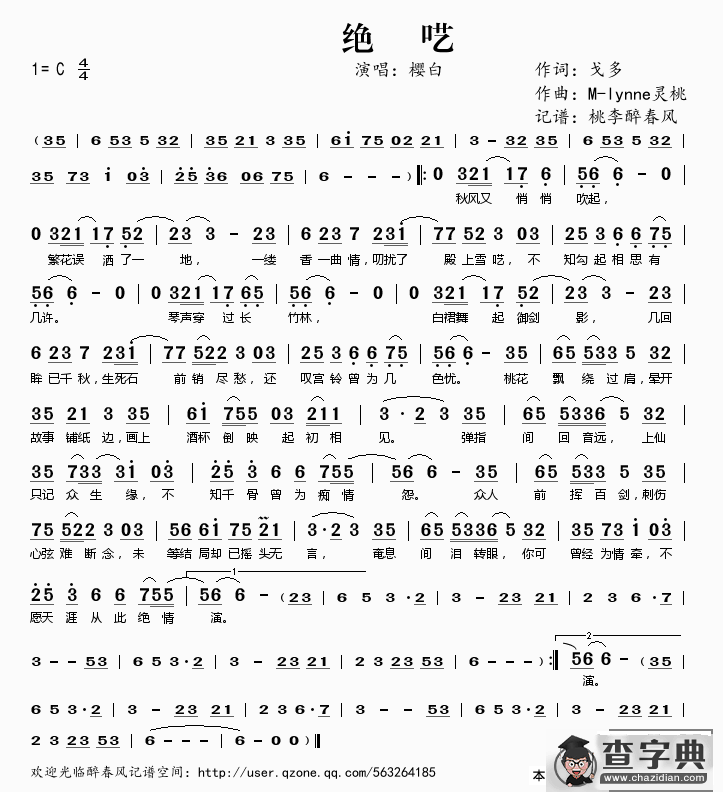 绝 呓
1=C 4/4 演唱：樱白 作词：戈多
作曲：M-lynne灵桃
记谱：桃李醉春风
(35 | 6 53 5 32 | 35 21 3 35 | 61 75 02 21 | 3 - 32 35 |
35 73 1 03 | 25 36 06 75 | 6 - - ‖: 0 321 17 6 | 56 6 - 0 |
秋风又 悄 悄 吹起，
0 321 17 52 | 23 3 - 23 | 6 23 7 231 | 77 52 3 03 | 25 3 6 6 75 |
繁花误 洒了一 地， 一缕 香一曲情，叨扰了 殿上雪呓，不 知勾起相思有
56 6 - 0 | 0 321 17 65 | 56 6 - 0 | 0 321 17 52 | 23 3 - 23 |
几许。 琴声穿 过长 竹林， 白裙舞 起御剑 影， 几回
6 23 7 231 | 77 522 3 03 | 25 3 6 6 75 | 56 6 - 35 | 65 533 5 32 |
眸已千秋，生死石 前销尽愁，还 叹宫铃曾为几 色忧。 桃花 飘绕过肩，晕开
35 21 3 35 | 61 755 03 211 | 3 · 2 3 35 | 65 5336 5 32 |
故事铺纸边，画上 酒杯倒映起初相 见。 弹指 间回音远，上仙
35 733 31 03 | 25 3 6 6 755 | 56 6 - 35 | 65 533 5 35 |
只记众生缘，不 知千骨曾为痴情 怨。 众人 前挥百剑，刺伤
75 522 3 03 | 56 61 75 21 | 3 · 2 3 35 | 65 5336 5 32 | 35 73 1 03 |
心弦难断念，未 等结局却已摇头无 言， 奄息 间泪转眼，你可 曾经为情牵，不
1
25 3 6 6 755 | 56 6 - (23 | 6 5 3 · 2 | 3 - 23 21 | 2 3 6 · 7 |
愿天涯从此绝情 演。
2
3 - - 53 | 6 5 3 · 2 | 3 - 23 21 | 2 3 23 53 | 6 - - - ) :‖ 56 6 - (35 |
演。
6 5 3 · 2 | 3 - 23 21 | 2 3 6 · 7 | 3 - - 53 | 6 5 3 · 2 | 3 - 23 21 |
2 3 23 53 | 6 - - - | 6 - 0 0 )‖
欢迎光临醉春风记谱空间：http://user.qzone.qq.com/563264185 本
查字典
www.chazidian.com